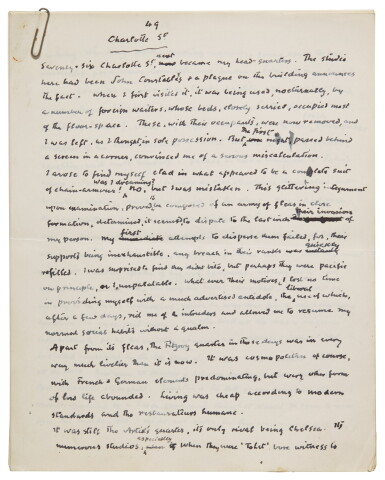 49
Charlotte St
Seventy-Six Charlotte St, next became my head-quarters. The studio
here had been John Constable's & a plaque on the building announces
the fact. When I first visited it, it was being used, nocturnally, by
a number of foreign waiters, whose beds, closely serried, occupied most
of the floor-space. These, with their occupants, were now removed, and
I was left, as I thought, in sole possession. But, the first night passed behind
a screen in a corner, convinced me of a serious miscalculation.
I arose to find myself clad in what appeared to be a complete suit
of chain-armour! was I dreaming? No, but I was mistaken. This glittering integument
upon examination, proved composed of an army of fleas in close
formation, determined, it seemed to dispute to the last inch their invasion of
my person. My first attempts to dispose them failed, for, their
supports being inexhaustible, any breach in their ranks was quickly
refilled. I was surprised to find they didn't bite, but perhaps they were pacific
on principle, or I, unpalatable. What ever their motives, I lost no time
in providing myself with a much advertised antidote, the liberal use of which,
after a few days, rid me of the intruders and allowed me to resume my
normal social habits without a qualm.
Apart from its fleas, the Fitzroy quarter in those days was in every
way much livelier than it is now. It was cosmopolitan of course,
with French & German elements predominating, but every other form
of low life abounded. Living was cheap according to modern
standards and the restaurateurs humane.
It was still the Artist's quarter, its only rival being Chelsea. Its
numerous studios, especially if when they were "To Let" bore witness to